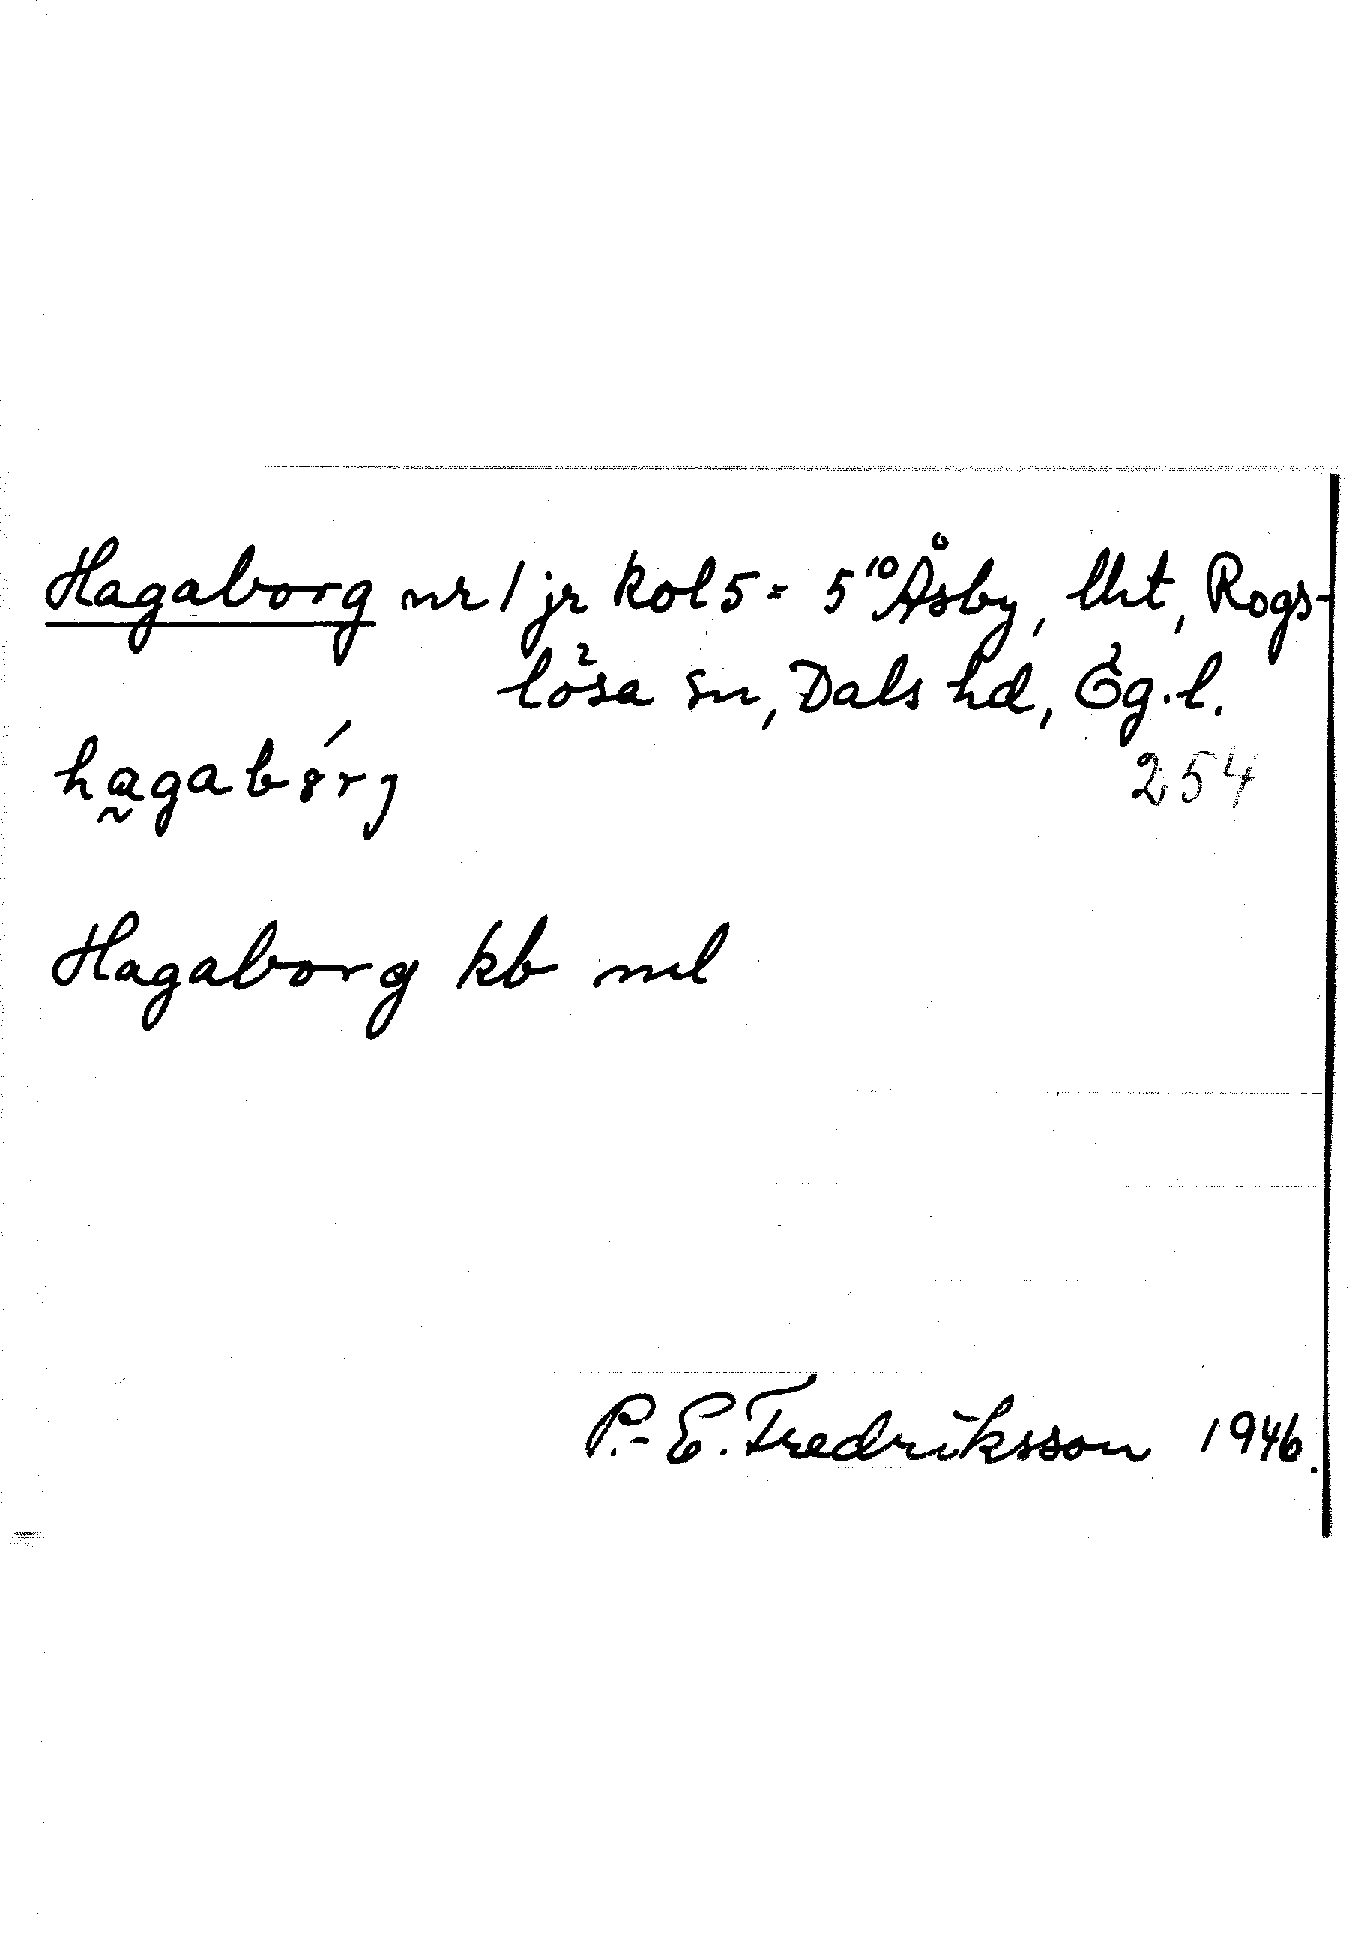 Hagaborg nr 1 jr kol 5 = 5¹⁰ Åsby, lht, Rogs-
lösa sn, Dals hd, Ög. l.
254
Hagaborg kb ml
P.-E. Fredriksson 1946.